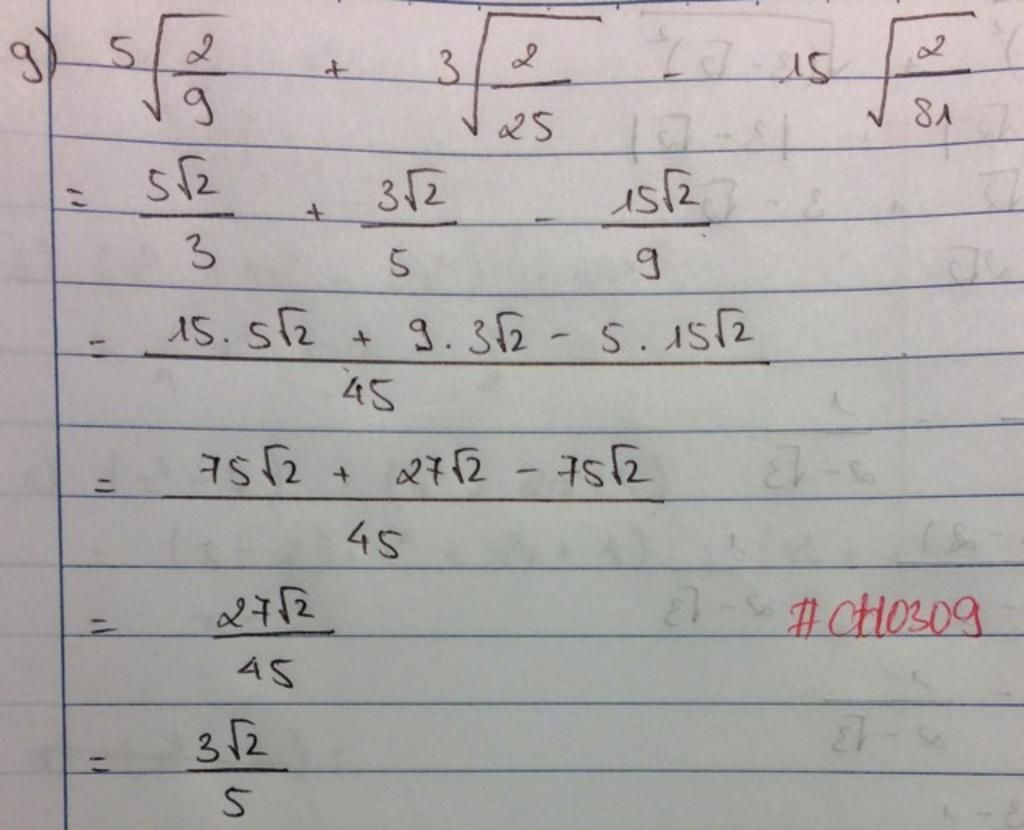 g) 5√(2/9) + 3√(2/25) - 15√(2/81)
= 5√2/3 + 3√2/5 - 15√2/9
= (15.5√2 + 9.3√2 - 5.15√2)/45
= (75√2 + 27√2 - 75√2)/45
= 27√2/45 #CH0309
= 3√2/5